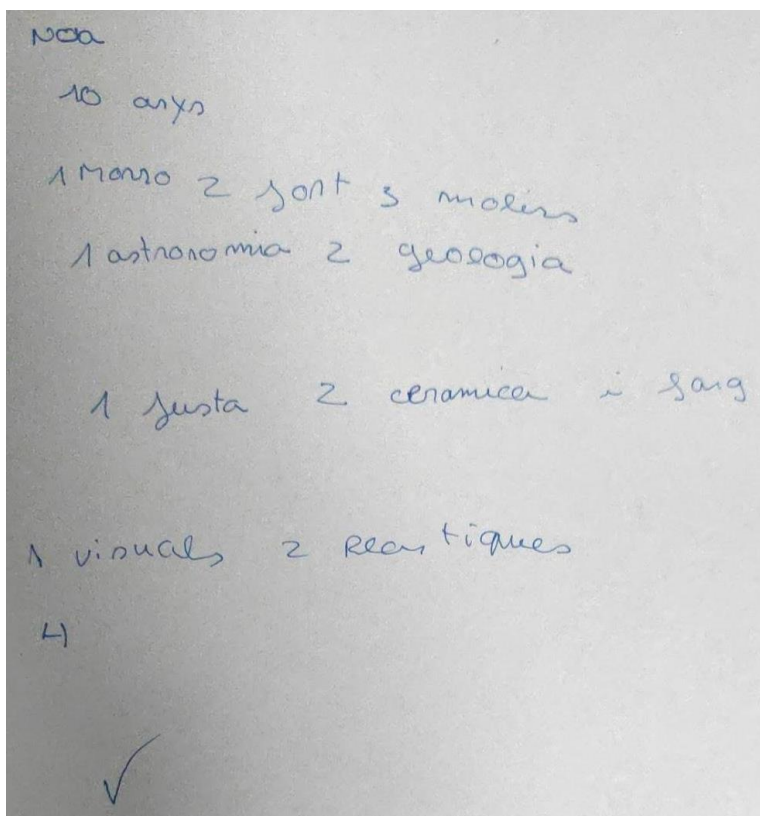 Noa
10 anys
1 Morro 2 font 3 molins
1 astronomia 2 geologia
1 fusta 2 ceramica i fang
1 visuals 2 plastiques
4
✓